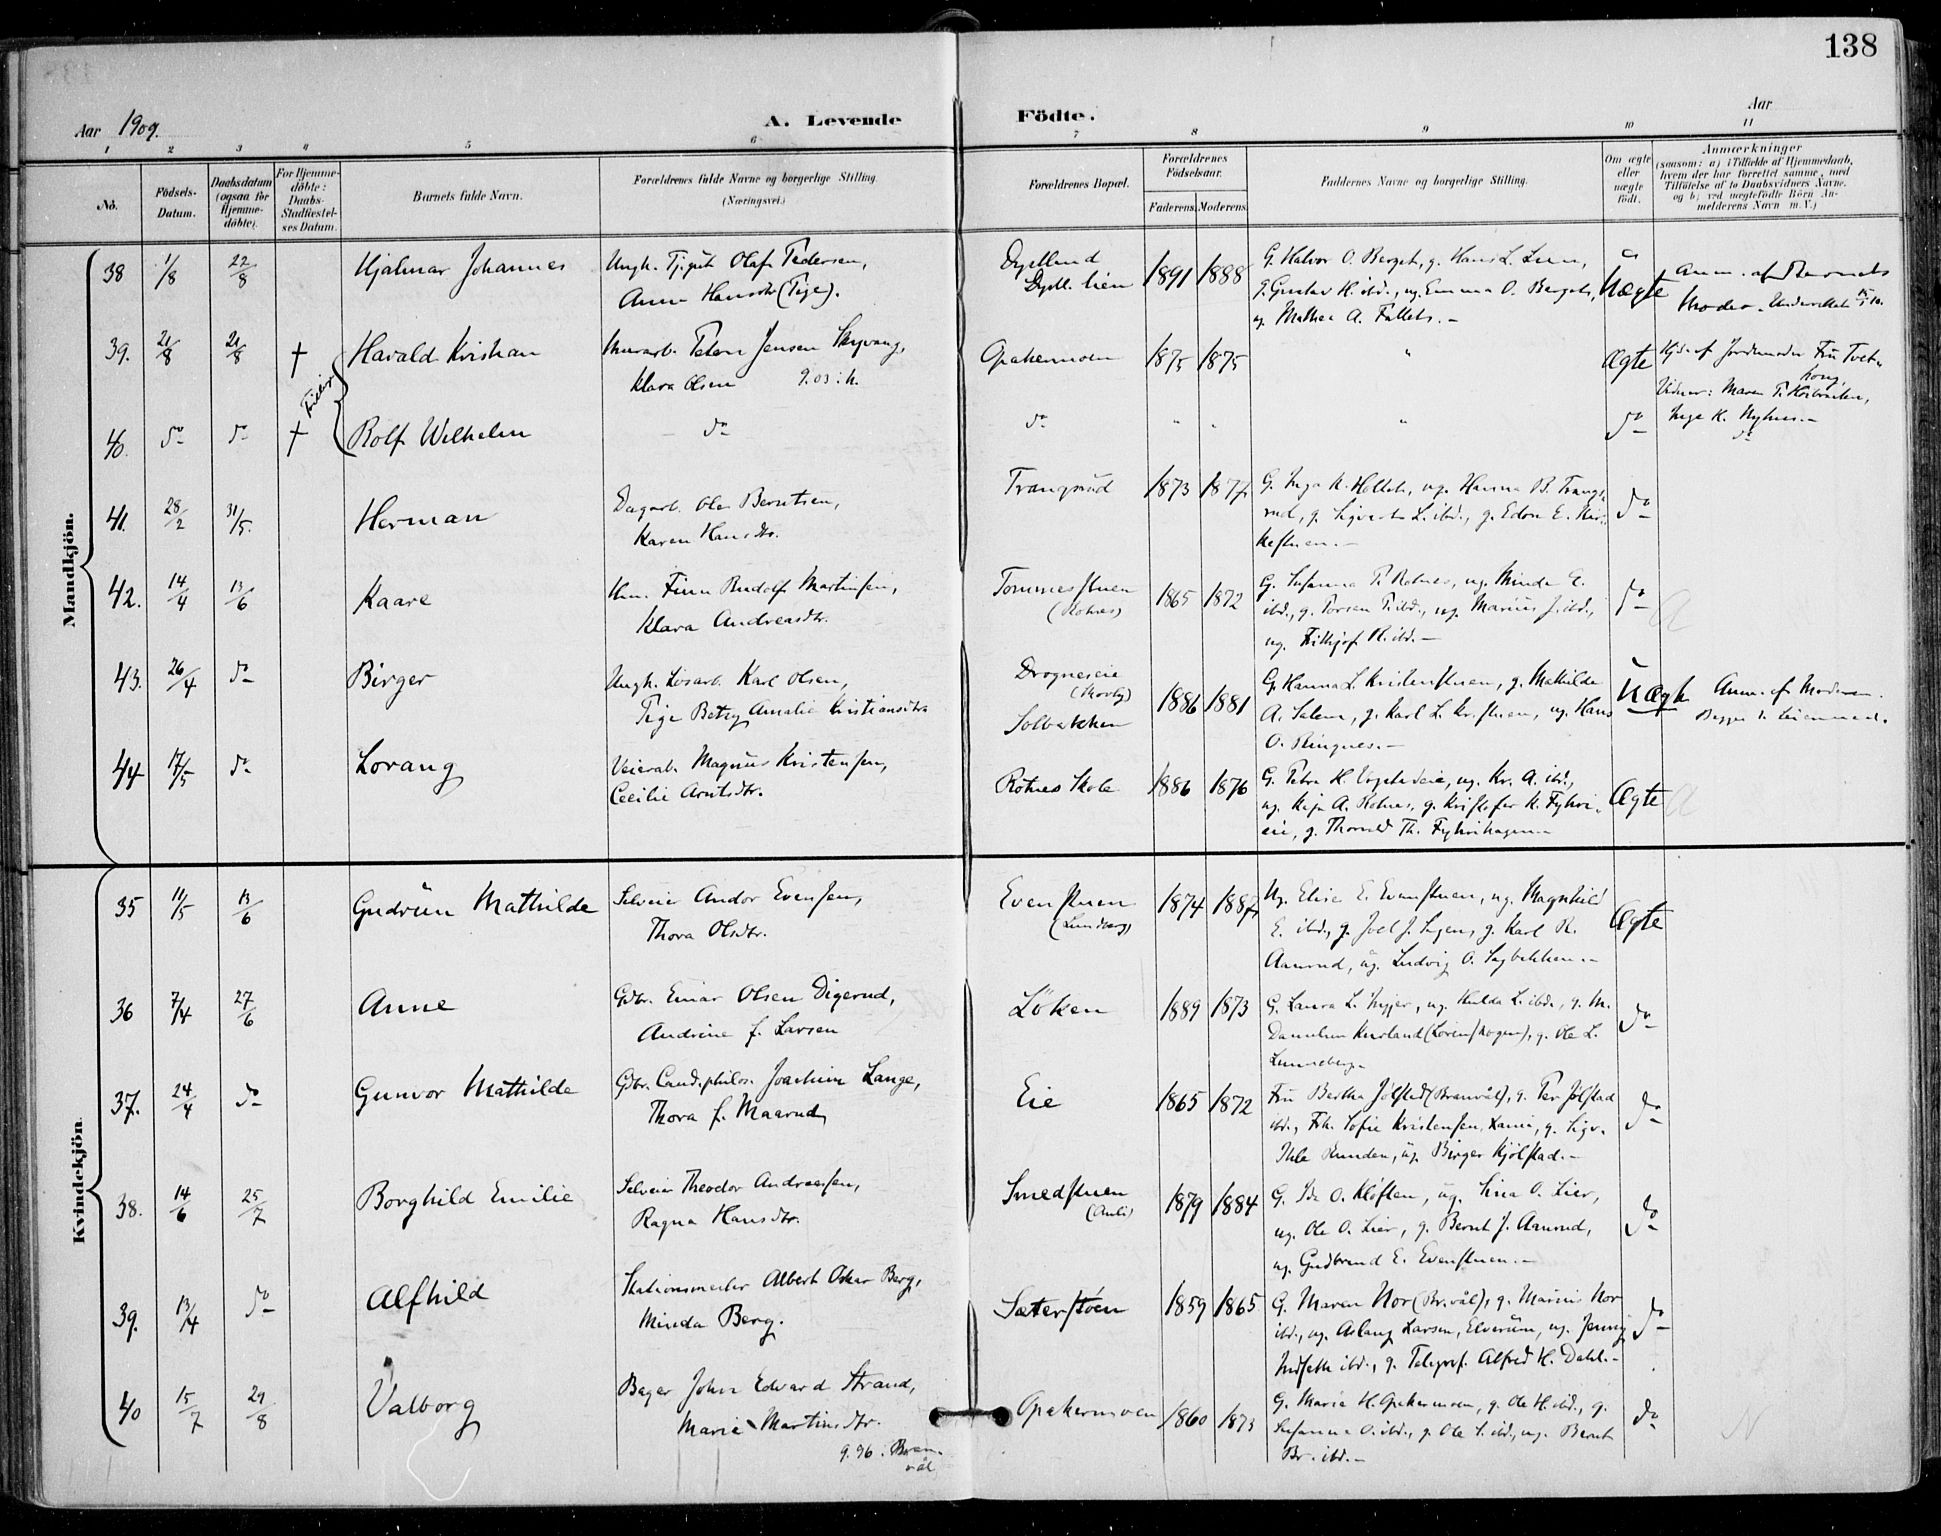 138
Aar 1909.
A. Levende Födte.
Aar
1 2 3 4 5 6 7 8 9 10 11
No.
Födsels-Datum.
Daabsdatum (ogsaa for Hjemme-döbte).
For Hjemme-döbte: Daabs-Stadfæstel-ses Datum.
Barnets fulde Navn.
Forældrenes fulde Navne og borgerlige Stilling.
(Næringsvei.)
Forældrenes Bopæl.
Forældrenes Födselsaar.
Faderens. Moderens.
Faddernes Navne og borgerlige Stilling.
Om ægte eller uægte födt.
Anmærkninger
(saasom: a) i Tilfælde af Hjemmedaab, hvem der har forrettet samme, med Tilföielse af to Daabsvidners Navne, og b) ved uægtefödte Börn An-melderens Navn m. V.)
Mandkjön.
38 1/8 22/8 Hjalmar Johannes
Ungk. Tj.gut Olaf Pedersen,
Anna Hansdtr (Pige).
1891 1888
G. Halvor O. Berget, g. Hans L. Lien,
g. Gustav H. ibd., ug. Emma O. Berget,
ug. Mathea A.
Uægte
Anm. af Barnets
Moder.
39. 21/8 21/8 † Harald Kristian
Murarb. Peter Jensen
Klara Olsen
Opakermoen 1875 1875 " Ægte
Hjd. af Jordmoder Fru
Vidner: Maren
Inge K. Nyhus.-
40. do do † Rolf Wilhelm do do " " " do do
41. 28/2 31/5. Herman
Dagarb. Ole Berntsen,
Karen Hansdtr.
Trangsrud 1873 1877
G. Inga K. ug. Hanna B. Trangs-
rud, g. L. ibd., g. E.
do
42. 14/4 13/6 Kaare
Finn Rudolf Martinsen,
Klara Andreasdtr.
Tommesstuen
(Rotnes)
1865 1872
G. Susanna P. Rotnes, ug. Minda E.
ibd., g. P. ibd., ug. Marius J. ibd.,
ug. Fridtjof R. ibd.-
do
43. 26/4 do Birger
Ungk. Lösarb. Karl Olsen,
Pige Betsy Amalie Kristiansdtr
Drogneseie
Solbakken
1886 1881
G. Hanna L. Kristenstuen, g. Mathilde
A. g. Karl L. Kr.stuen, ug. Hans
O. Ringnes.-
Uægte
Anm. af Moderen.
44 17/5 do Lorang
Veiarb. Magnus Kristensen,
Cecilie Arntsdtr.
Rotnes Skole 1886 1876
G. Petra H. ug. Kr. A. ibd.,
ug. Kaja A. Rotnes, g. Kristofer K.
eie, g. Th.
Ægte
Kvindekjön.
35 11/5 13/6 Gudrun Mathilde
Selveier Andor Evensen,
Thora Olsdtr.
Evenstuen
1874 1887
Ug. Elise E. Evenstuen, ug. Magnhild
E. ibd., g. Joel J. g. Karl R.
Aamrud, ug. Ludvig O. Sagbakken.-
Ægte
36 7/4 27/6 Anne
Gbr. Einar Olsen Digerud,
Andrine f. Larsen
Löken 1889 1873
G. Laura L. ug. Hulda L. ibd., g. M.
g. Ole L.
Lunneberg.
do
37. 24/4 do Gunvor Mathilde
Gbr. Cand. philos. Joachim Lange,
Thora f. Maarud
Eie 1865 1872
Fru Bertha Jölstad (Branvål), g. Per Jölstad
ibd., Frk. Sofie Kristensen, g. Sigv.
ug. Birger Kjölstad.-
do
38. 14/6 25/7 Borghild Emilie
Selveier Theodor Andreassen,
Ragna Hansdtr.
Smedstuen
1879 1884
G. Ida O. Kloften, ug. Lina O. Lier,
ug. Ole O. Lier, g. Bernt J. Aamrud,
ug. Gudbrand E. Evenstuen.-
do
39. 13/4 do Alfhild
Stationsmester Albert Oskar Berg,
Minda Berg.
Sæterstöen 1859 1865
G. Maren Nor (Br.vål), g. Marius Nor
ibd., ug. Aslaug Larsen, Elverum, ug. Jenny
ibd., g. Telegraf. Alfred H. Dahl.-
do
40 15/7 29/8 Valborg
Bager John Edvard Strand,
Marie Martinsdtr.
g. 96. Bran-
vål
Opakermoen 1860 1873
G. Maria H. Opakermoen, g. Ole H. ibd., g.
Susanna O. ibd., g. Ole S. ibd., ug. Bernt
Br. ibd.-
do